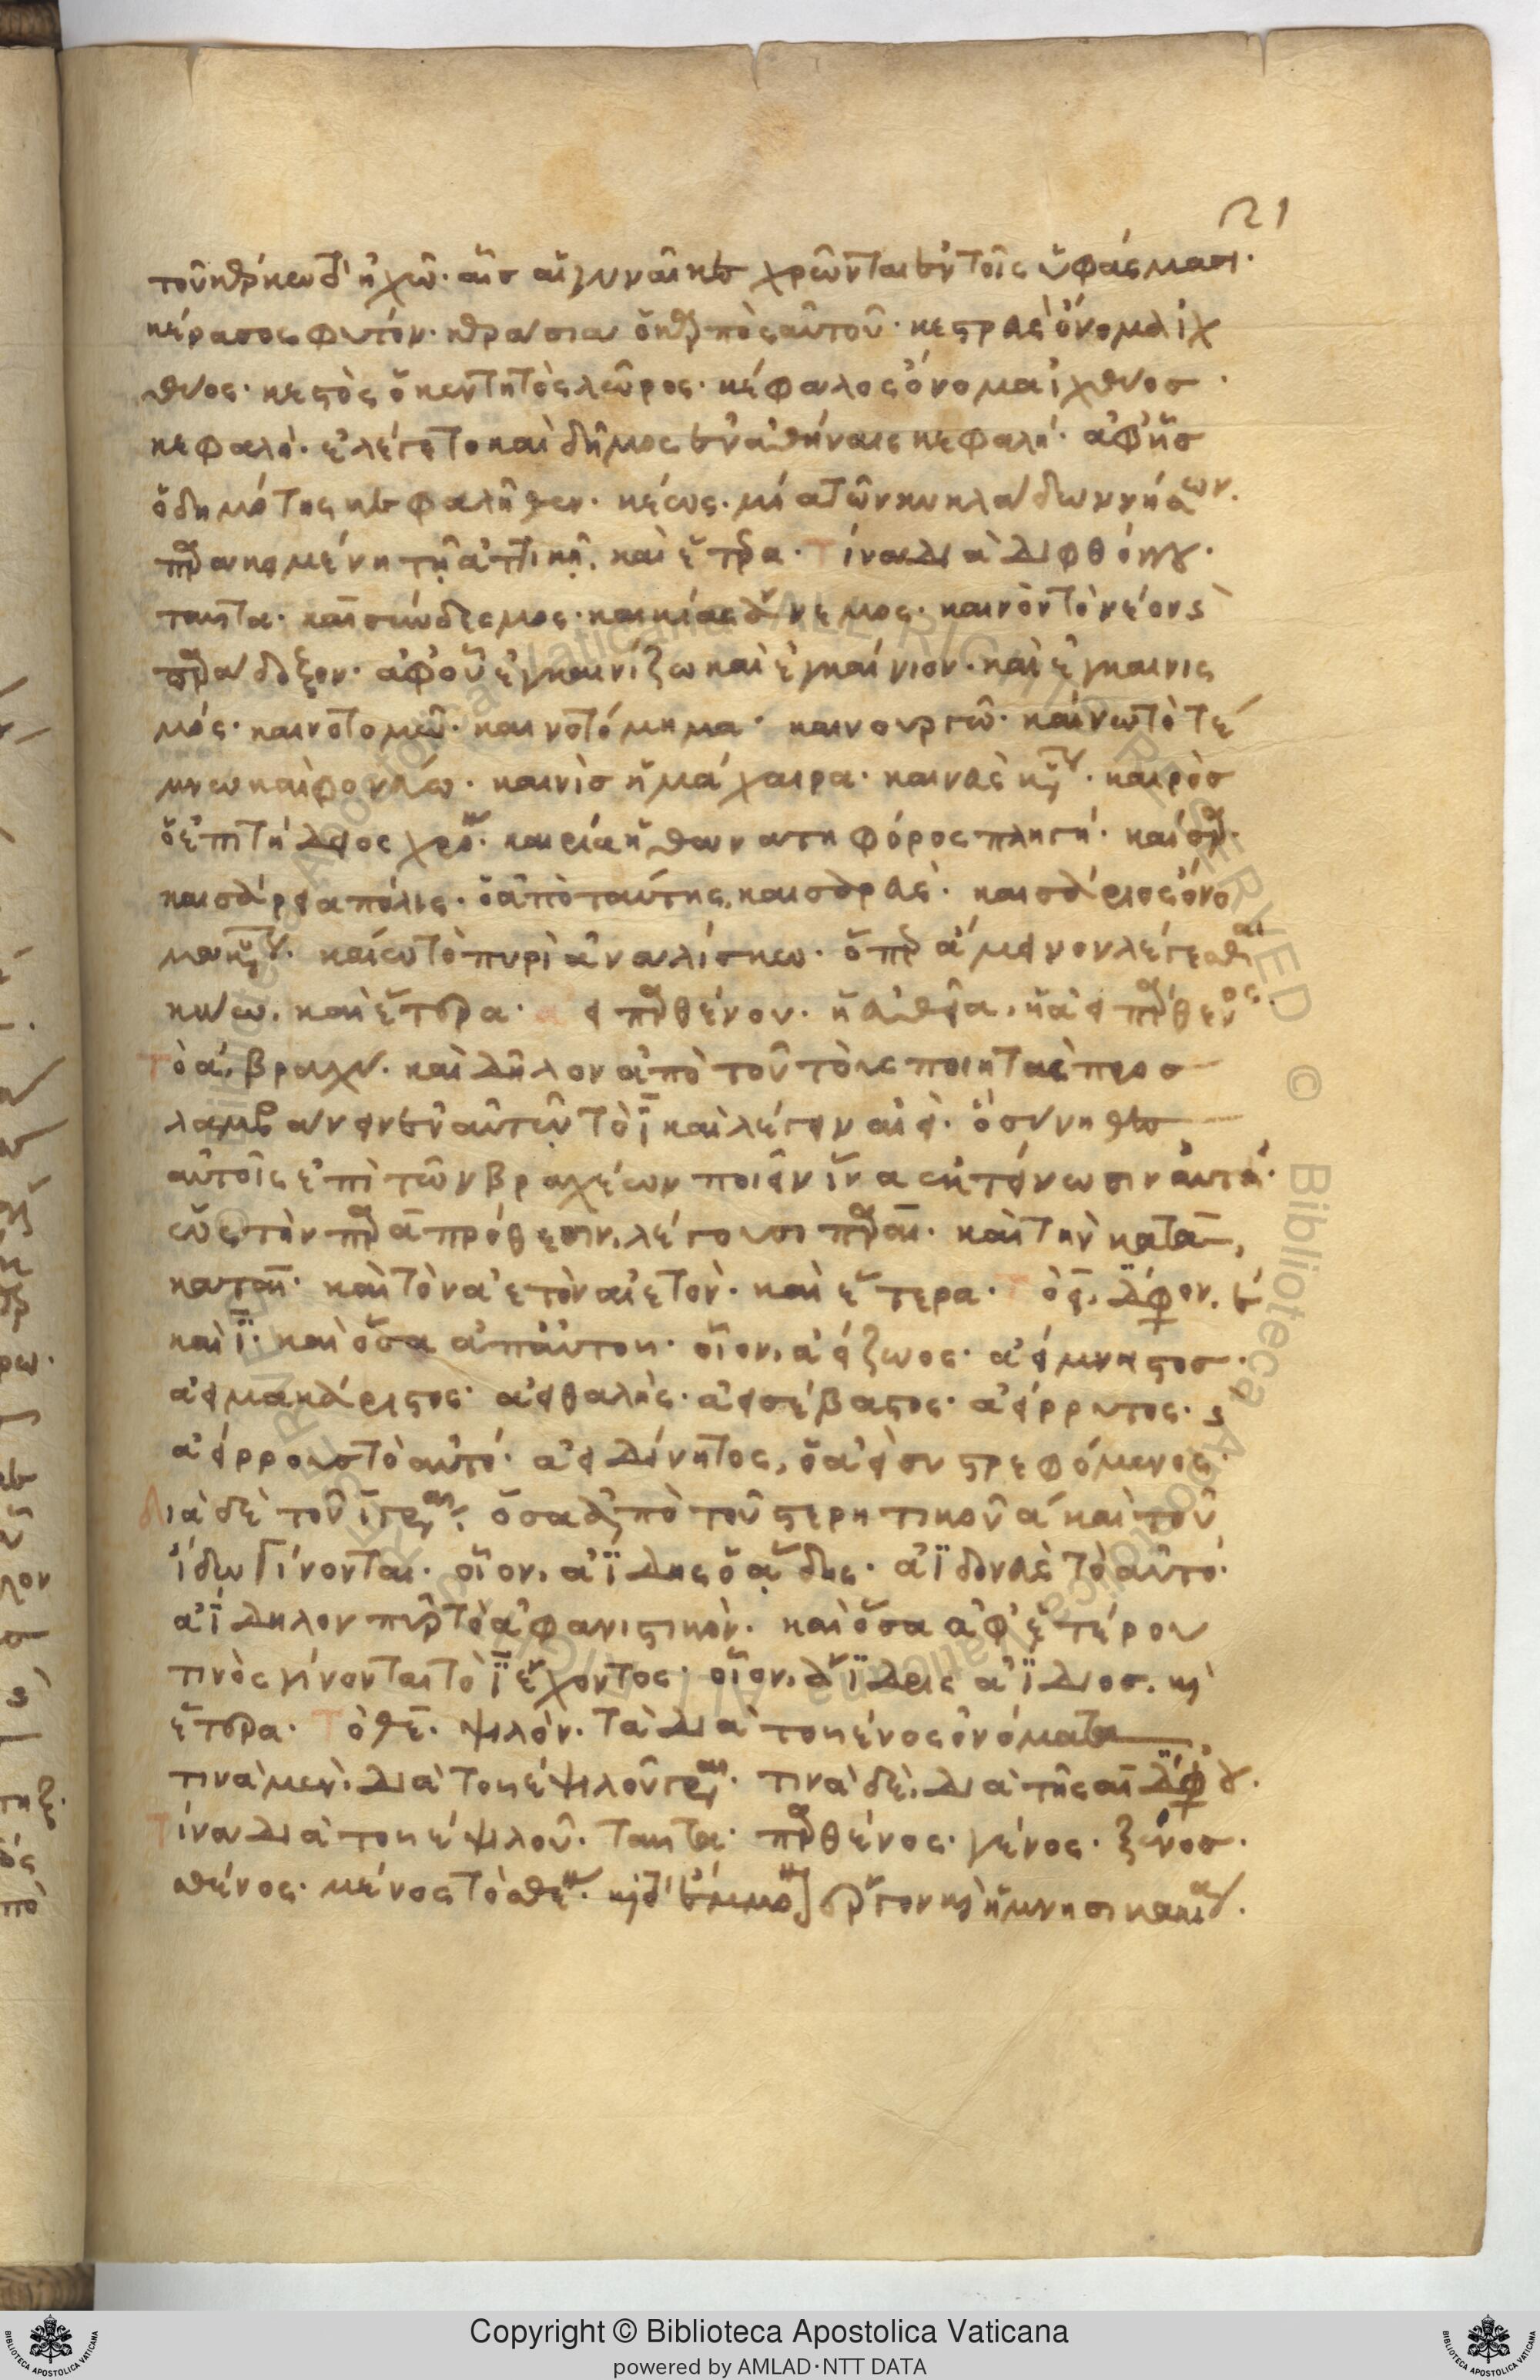 21
τοῦ κρέκω τὸ ἠχῶ· αἷς αἱ γυναῖκες χρῶνται ἐν τοῖς ὑφάσμασι·
κέρασος φυτόν· κεράσια ὁ καρπὸς αὐτοῦ· κεστρεὺς ὄνομα ἰχ
θύος· κεστὸς ὁ κεντητὸς λῶρος· κέφαλος ὄνομα ἰχθύος·
κεφαλή· ἐλέγετο καὶ δῆμος ἐν ἀθήναις κεφαλή· ἀφ' ἧς
ὁ δημότης κεφαλῆθεν· κέως· μία τῶν κυκλάδων νήσων·
τῇ ἀττικῇ· καὶ ἕτερα· Τίνα διὰ διφθόγγου·
ταῦτα· καὶ σύνδεσμος· καικίας ἄνεμος· καινὸν τὸ νέον καὶ
παράδοξον· ἀφ' οὗ ἐγκαινίζω καὶ ἐγκαίνιον· καὶ ἐγκαινισ
μός· καινοτομῶ· καινοτόμημα· καινουργῶ· καίνω τὸ τέ
μνω καὶ φονεύω· καινὶς ἡ μάχαιρα· καινεὺς κύριον· καιρὸς
ὁ ἐπιτήδειος χρόνος· καιρία ἡ θανατηφόρος πληγή· καῖσαρ·
καισάρεια πόλις· ὁ ἀπὸ ταύτης, καισαρεύς· καισάριος ὄνο
μα κύριον· καίω τὸ πυρὶ ἀναλίσκω· ὅπερ ἄμεινον λέγεσθαι
κάω. καὶ ἕτερα· ἀειπαρθένον· ἢ εὐθεῖα, ἡ ἀειπάρθενος·
Τὸ α, βραχύ. καὶ δῆλον ἀπὸ τοῦ τοὺς ποιητὰς προσ
λαμβάνειν ἐν αὐτῷ τὸ ϊ καὶ λέγειν αἰεί· ὃ σύνηθες
αὐτοῖς ἐπὶ τῶν βραχέων ποιεῖν ἵνα ἐκτείνωσιν αὐτά·
ὡς τὴν παρὰ πρόθεσιν, λέγουσι παραί· καὶ τὴν κατὰ,
καταί· καὶ τὸν ἀετὸν αἰετόν· καὶ ἕτερα· Τὸ ει, δίφθογγον. ε
καὶ ϊ· καὶ ὅσα ἀπ' αὐτοῦ· οἷον, ἀείζωος· ἀείμνηστος·
ἀειμακάριστος· ἀειθαλής· ἀεισέβαστος· ἀείρρυτος· καὶ
ἀείρρους τὸ αὐτό· ἀειδίνητος, ὁ ἀεὶ συστρεφόμενος·
Διὰ δὲ τοῦ ϊ γράφεται· ὅσα ἀπὸ τοῦ στερητικοῦ α καὶ τοῦ
ἴδω Γίνονται· οἷον, ἀΐδης ὁ ᾅδης· ἀϊδονεὺς τὸ αὐτό·
ἀΐδηλον πῦρ τὸ ἀφανιστικόν· καὶ ὅσα ἀφ' ἑτέρου
τινὸς γίνονται τὸ ϊ ἔχοντος· οἷον, ἄϊδρις ἀΐδιος. καὶ
ἕτερα· Τὸ θε. ψιλόν. Τὰ διὰ τοῦ ένος ὀνόματα
τινὰ μὲν, διὰ τοῦ ε ψιλοῦ γράφεται· τινὰ δὲ, διὰ τῆς αι διφθόγγου.
Τίνα διὰ τοῦ ε ψιλοῦ· ταῦτα· παρθένος· γένος· ξένος·
σθένος· μένος τὸ σθένος· ἔργον καὶ ἡ μνησικακία.